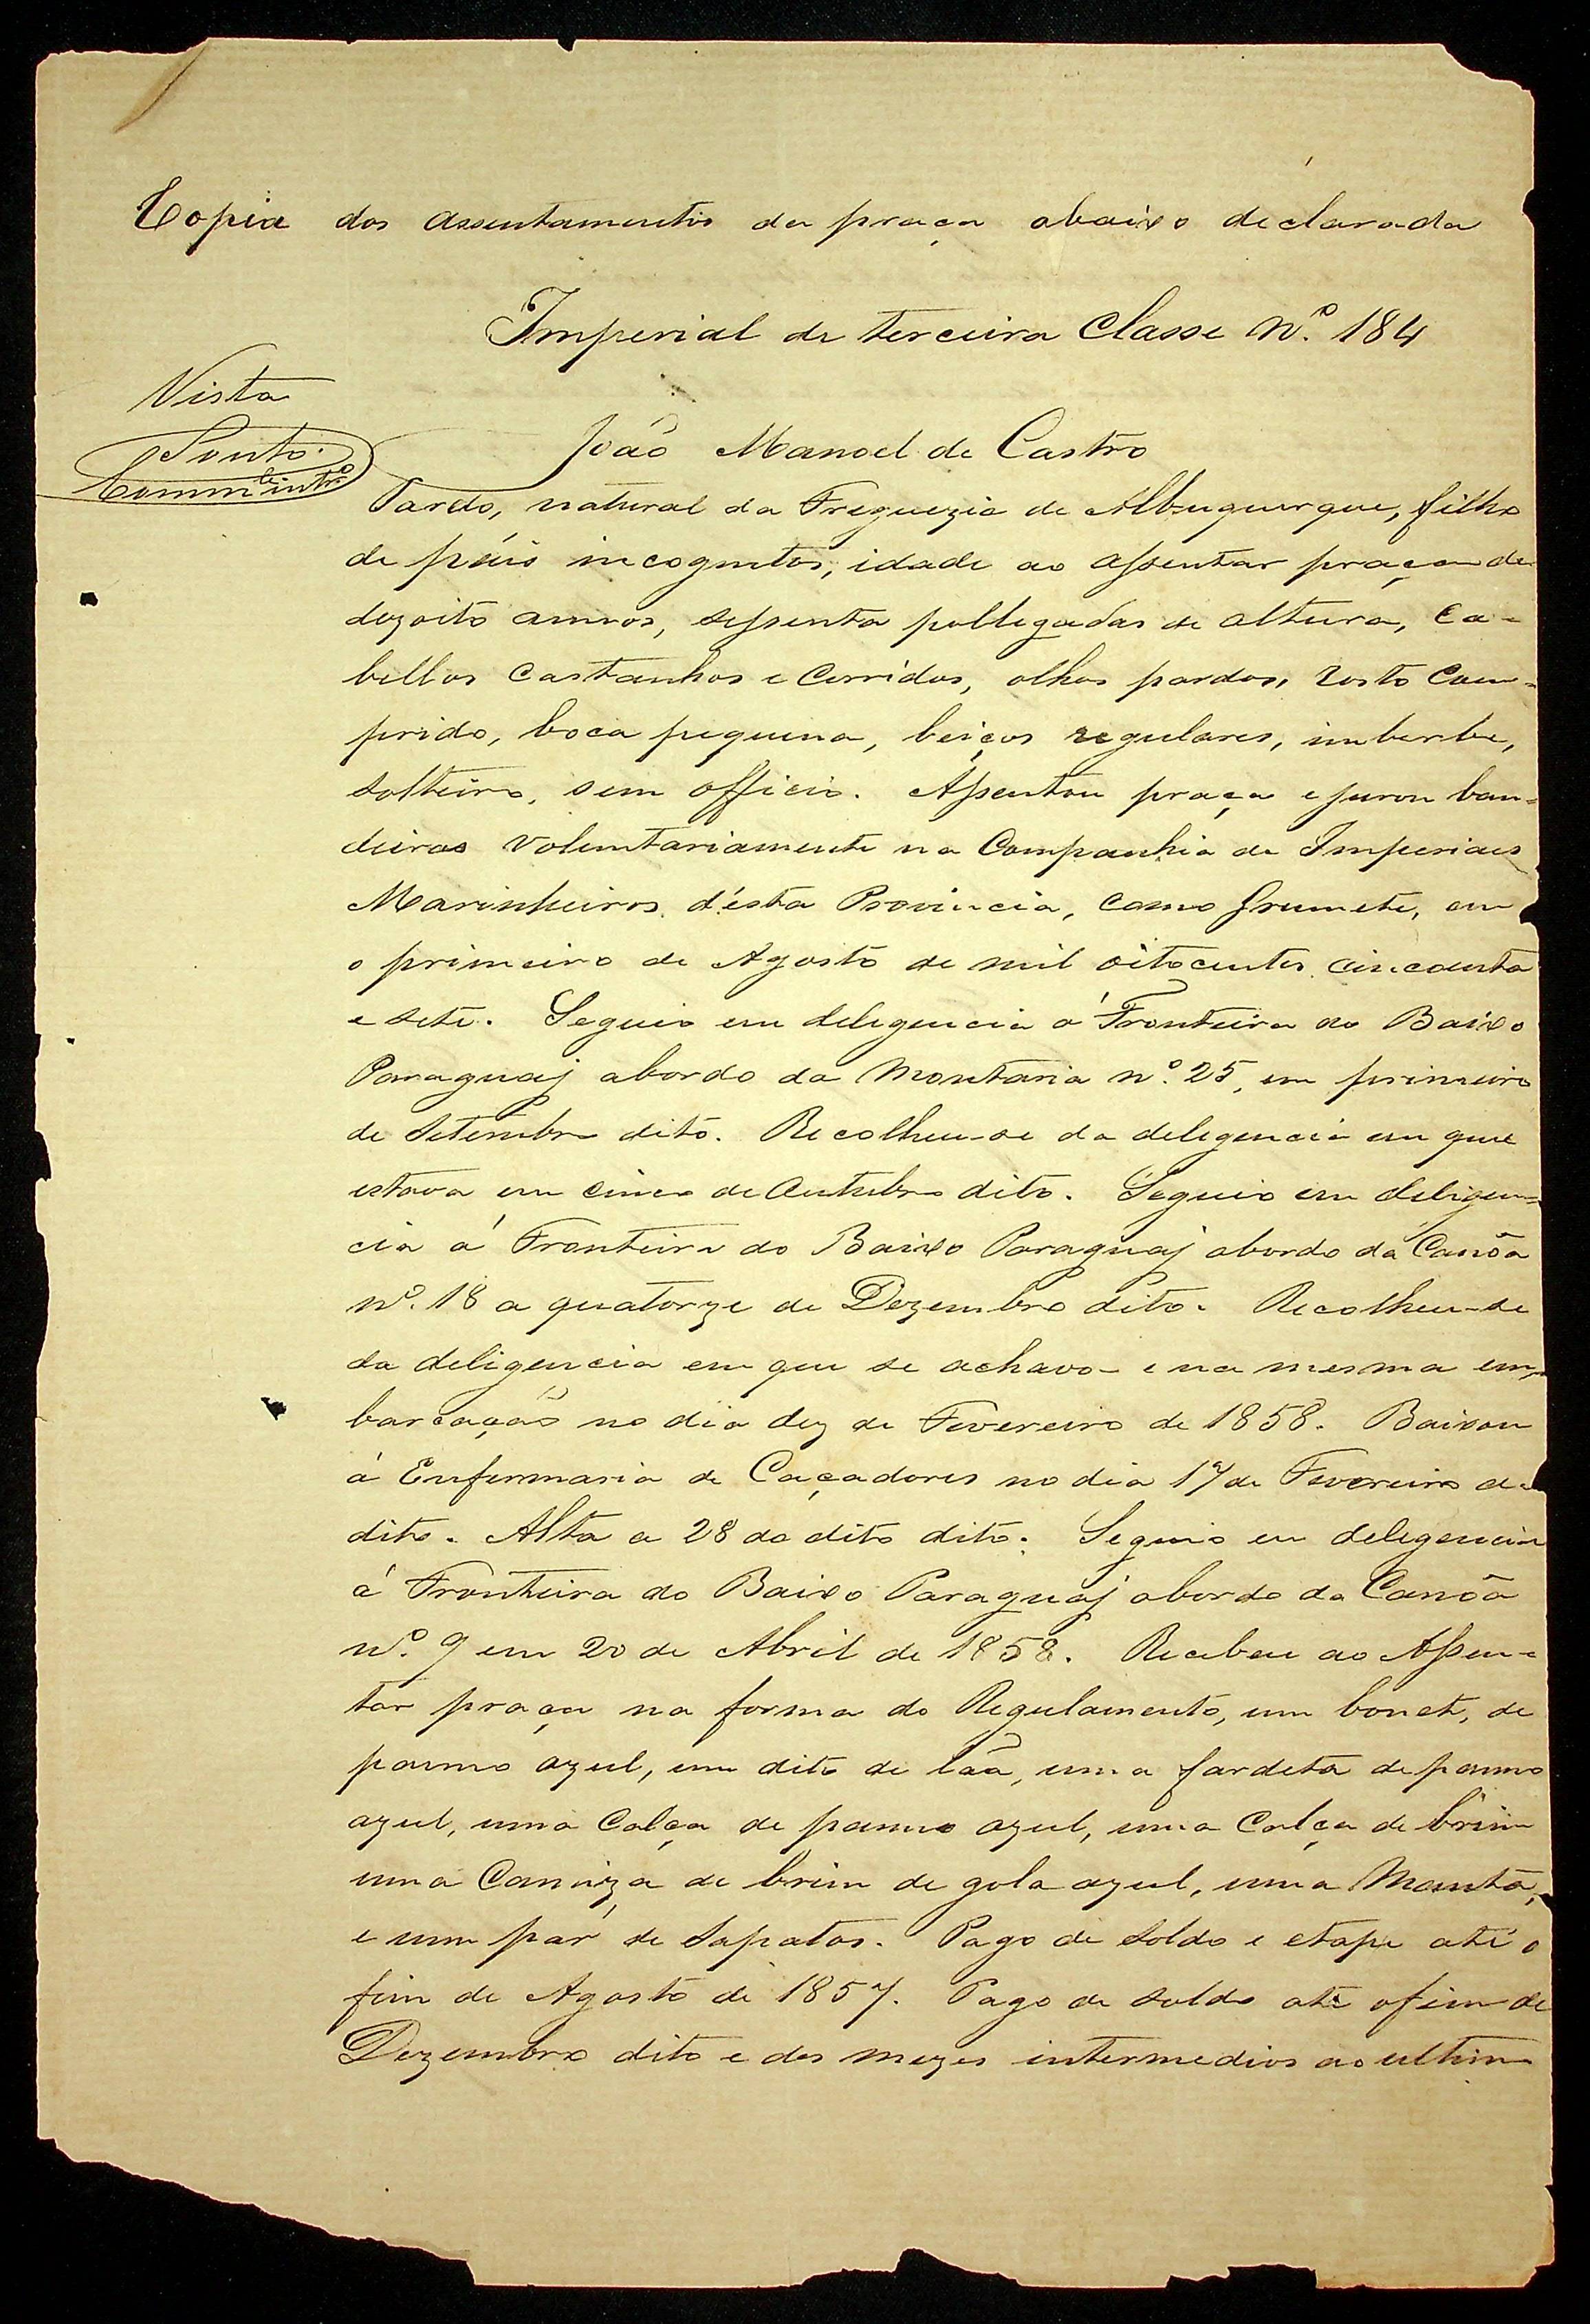 Copia dos assentamentos da praça abaixo declarada
Imperial de terceira Classe Nº. 184
Vista
Souto
Comm.te intrº
João Manoel de Castro
Pardo, natural da Freguezia de Albuquerque, filho
de páis incognitos, idade ao assentar praça de
dezoito annos, sessenta pollegadas de altura, ca-
bellos castanhos e corridos, olhos pardos, rosto com-
prido, boca pequena, beiços regulares, imberbe,
solteiro, sem officio. Assentou praça e jurou ban-
deiras voluntariamente na Companhia de Imperiaes
Marinheiros d'ésta Provincia, como Grumete, em
o primeiro de Agosto de mil oitocentos cincoenta
e sete. Seguio em deligencia á Fronteira do Baixo
Paraguaj abordo da Montaria nº. 25, em primeiro
de Setembro dito. Recolheu-se da deligencia em que
estava em cinco de Outubro dito. Seguio em deligen-
cia á Fronteira do Baixo Paraguaj abordo da Canôa
nº. 18 a quatorze de Dezembro dito. Recolheu-se
da deligencia em que se achava e na mesma em-
barcação no dia dez de Fevereiro de 1858. Baixou
á Enfermaria de Caçadores no dia 17 de Fevereiro de
dito. Alta a 28 do dito dito. Seguio em deligencia
á Fronteira do Baixo Paraguaj abordo da Canôa
nº. 9 em 20 de Abril de 1858. Recebeu ao Assen-
tar praça na forma do Regulamento, um bonet, de
panno azul, um dito de lãa, uma fardeta de panno
azul, uma Calça de panno azul, uma Calça de brim
uma Camiza de brim de gola azul, uma Manta,
e um par de Sapatos. Pago de soldo e etape até o
fim de Agosto de 1857. Pago de soldo até o fim de
Dezembro dito e dos mezes intermedios ao ultimo